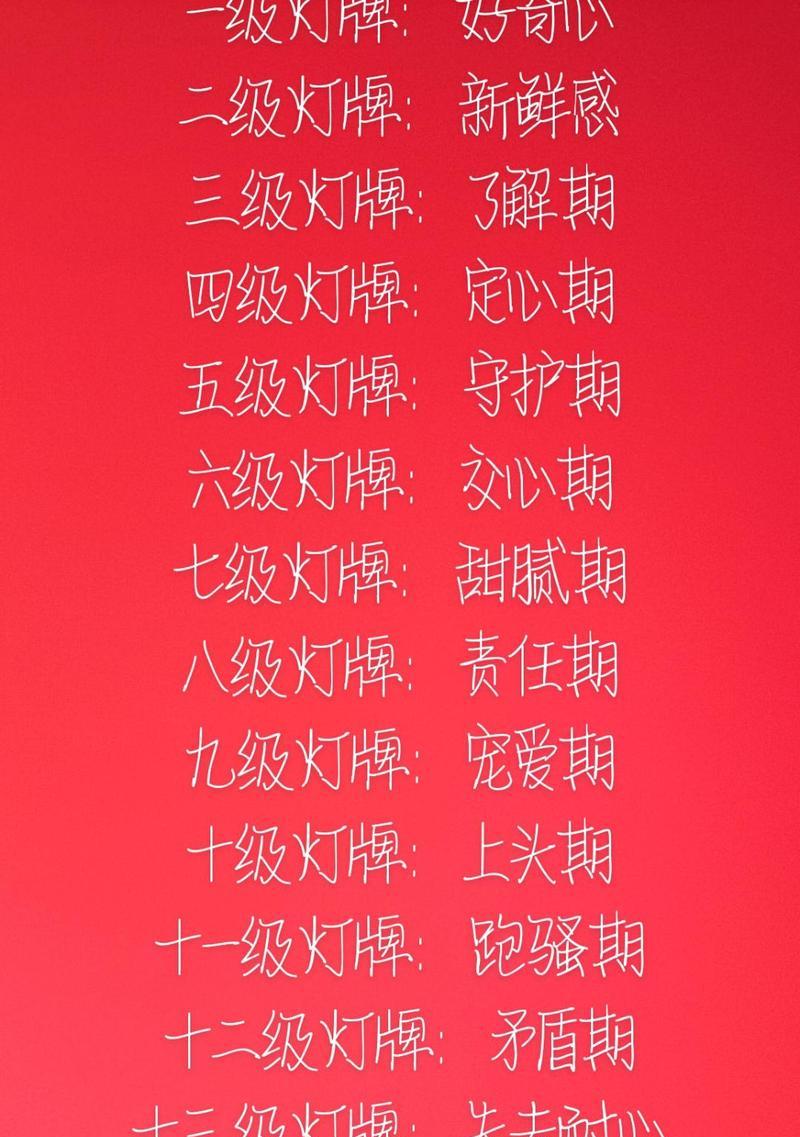 一级灯牌: 好奇心
二级灯牌: 新鲜感
三级灯牌: 了解期
四级灯牌: 定心期
五级灯牌: 守护期
六级灯牌: 交心期
七级灯牌: 甜腻期
八级灯牌: 责任期
九级灯牌: 宠爱期
十级灯牌: 上头期
十一级灯牌: 跑骚期
十二级灯牌: 矛盾期
十三级灯牌: 失去耐心